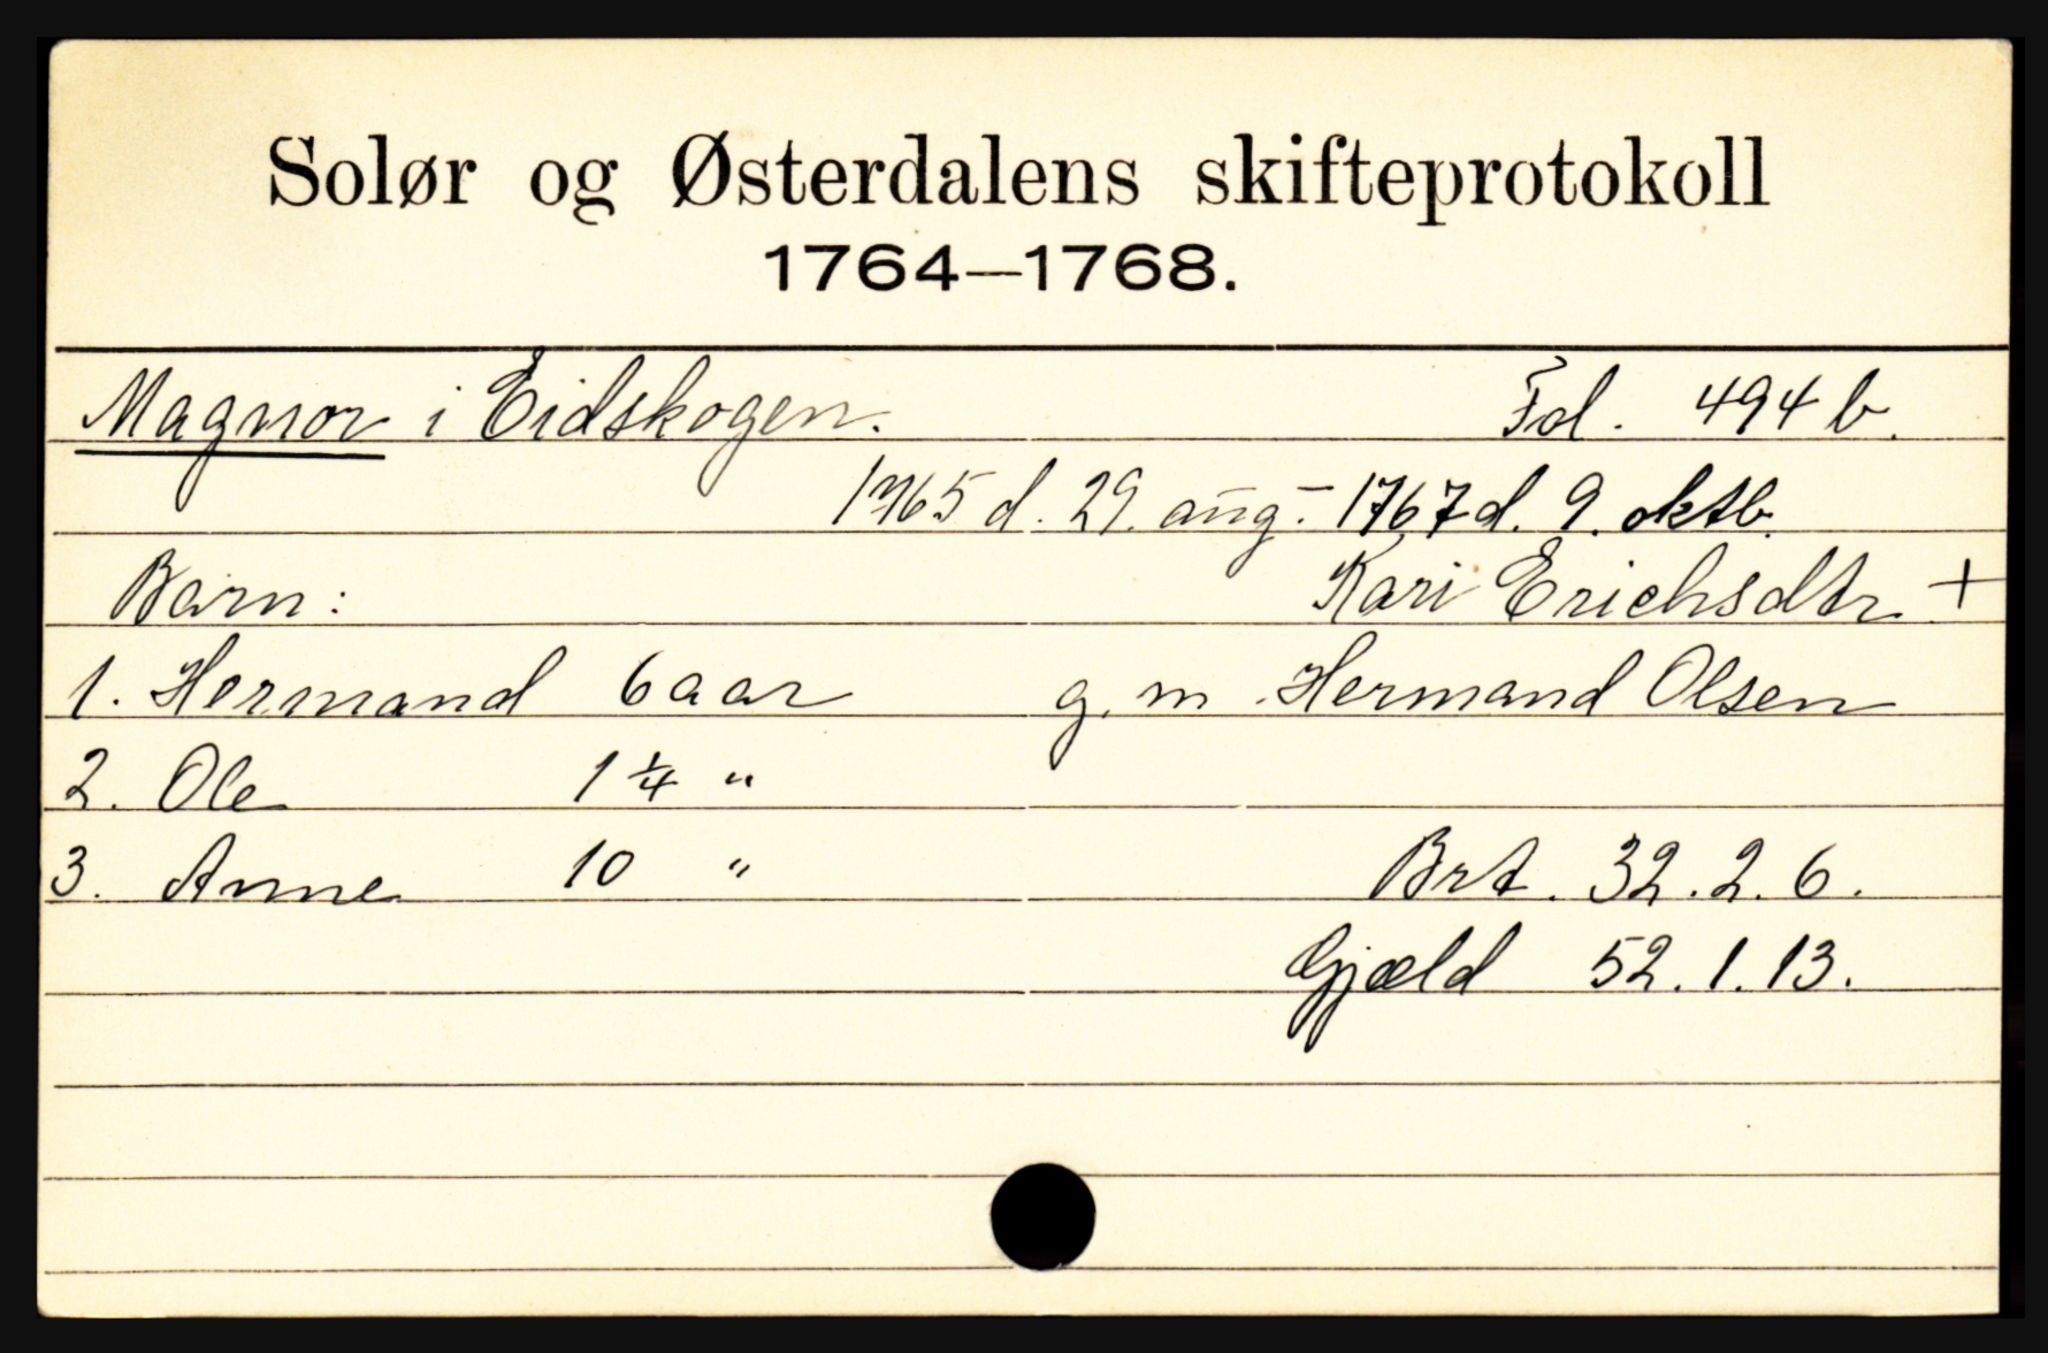 Solør og Østerdalens skifteprotokoll
1764—1768.
Magnor i Eidskogen. Fol. 494 b.
1765 d. 29. aug. - 1767 d. 9. oktb.
Barn: Kari Erichsdtr. +
1. Hermand 6 aar g. m. Hermand Olsen
2. Ole 1 1/4 "
3. Anne 10 " Brt. 32. 2. 6.
Gjæld 52. 1. 13.